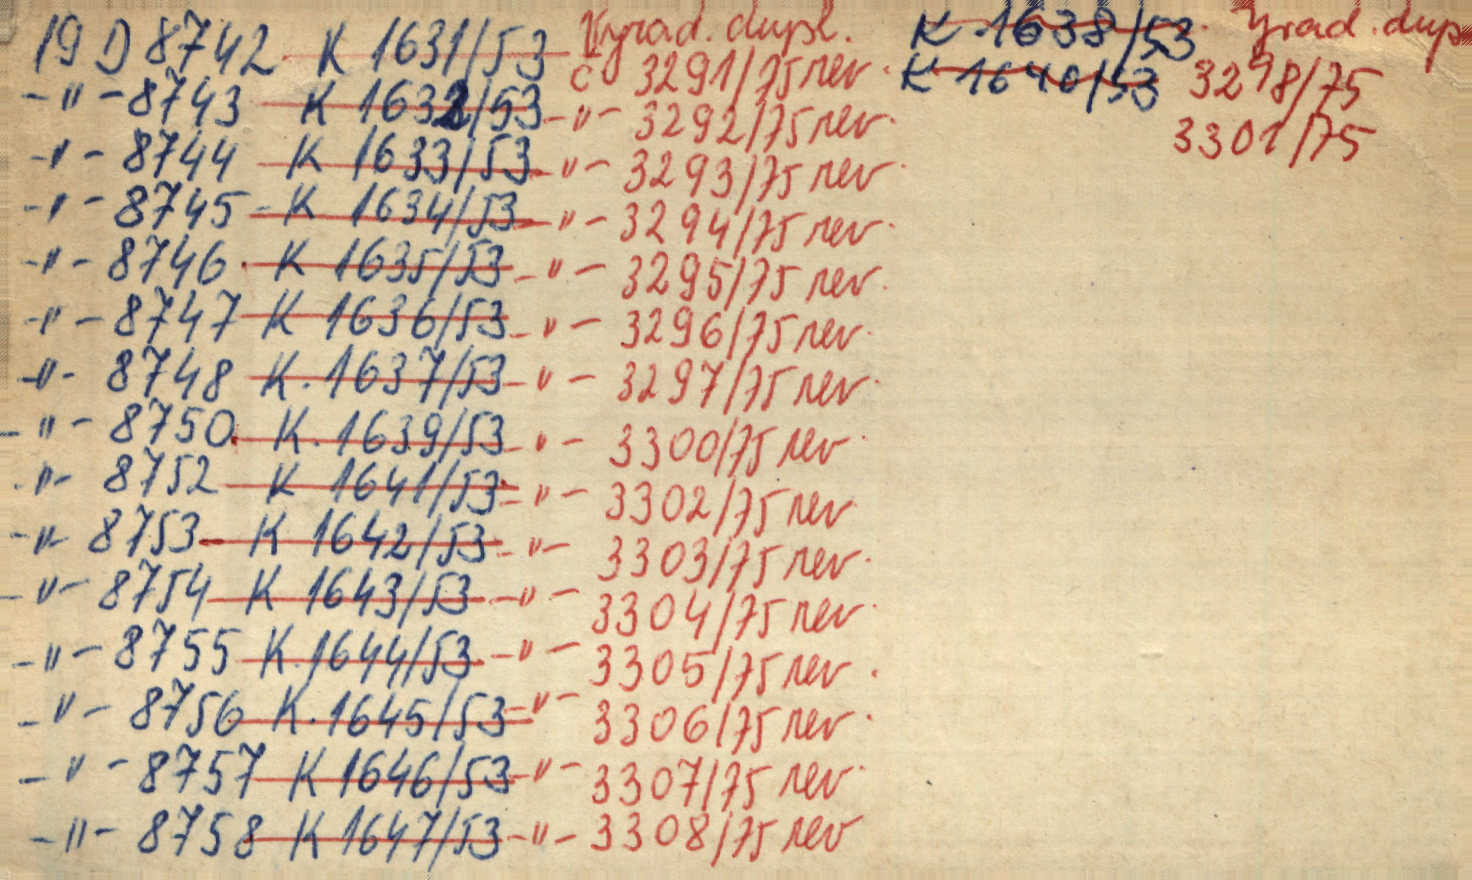 19 D 8742 K 1631/53 Vyrad. dupl.
č 3291/75 rev.
-"- 8743 K 1632/53 -"- 3292/75 rev.
-"- 8744 K 1633/53 -"- 3293/75 rev.
-"- 8745 - K 1634/53 -"- 3294/75 rev.
-"- 8746. K 1635/53 -"- 3295/75 rev.
-"- 8747 K 1636/53 -"- 3296/75 rev.
-"- 8748 K. 1637/53 -"- 3297/75 rev.
-"- 8750. K. 1639/53 -"- 3300/75 rev.
-"- 8752 K 1641/53 -"- 3302/75 rev
-"- 8753 K 1642/53 -"- 3303/75 rev.
-"- 8754 K 1643/53 -"- 3304/75 rev.
-"- 8755 K. 1644/53 -"- 3305/75 rev.
-"- 8756 K. 1645/53 -"- 3306/75 rev.
-"- 8757 K 1646/53 -"- 3307/75 rev.
-"- 8758 K 1647/53 -"- 3308/75 rev
K 1638/53. Vyrad. dup
K 1640/53 3298/75
3301/75